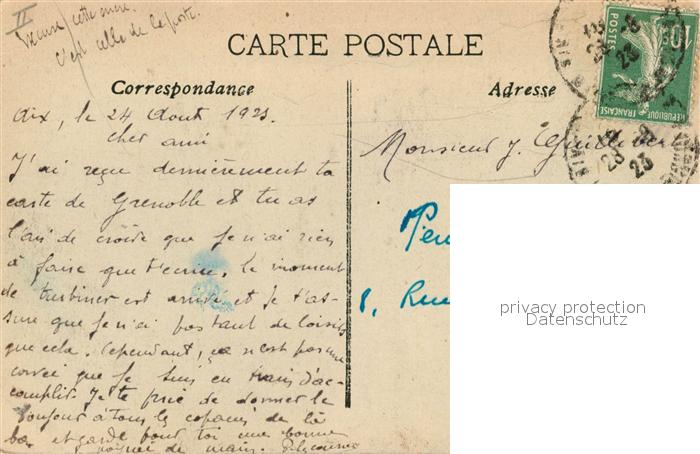 II
Excuse cette encre
c'est celle de la poste.
CARTE POSTALE
Correspondance
Adresse
Aix, le 24 Aout 1923.
cher ami
J'ai reçu dernièrement ta
carte de Grenoble et tu as
l'air de croire que je n'ai rien
à faire que t'écrire, le moment
de turbiner est arrivé et je t'as-
sure que je n'ai pas tant de loisirs
que cela. Cependant, ce n'est pas une
corvée que je suis en train d'ac-
complir. Je te prie de donner le
bonjour à tous les copains de là
bas et garde pour toi une bonne
poignée de main.
Monsieur J.
8, Rue
POSTES
10c
REPUBLIQUE FRANÇAISE
23
23
privacy protection
Datenschutz